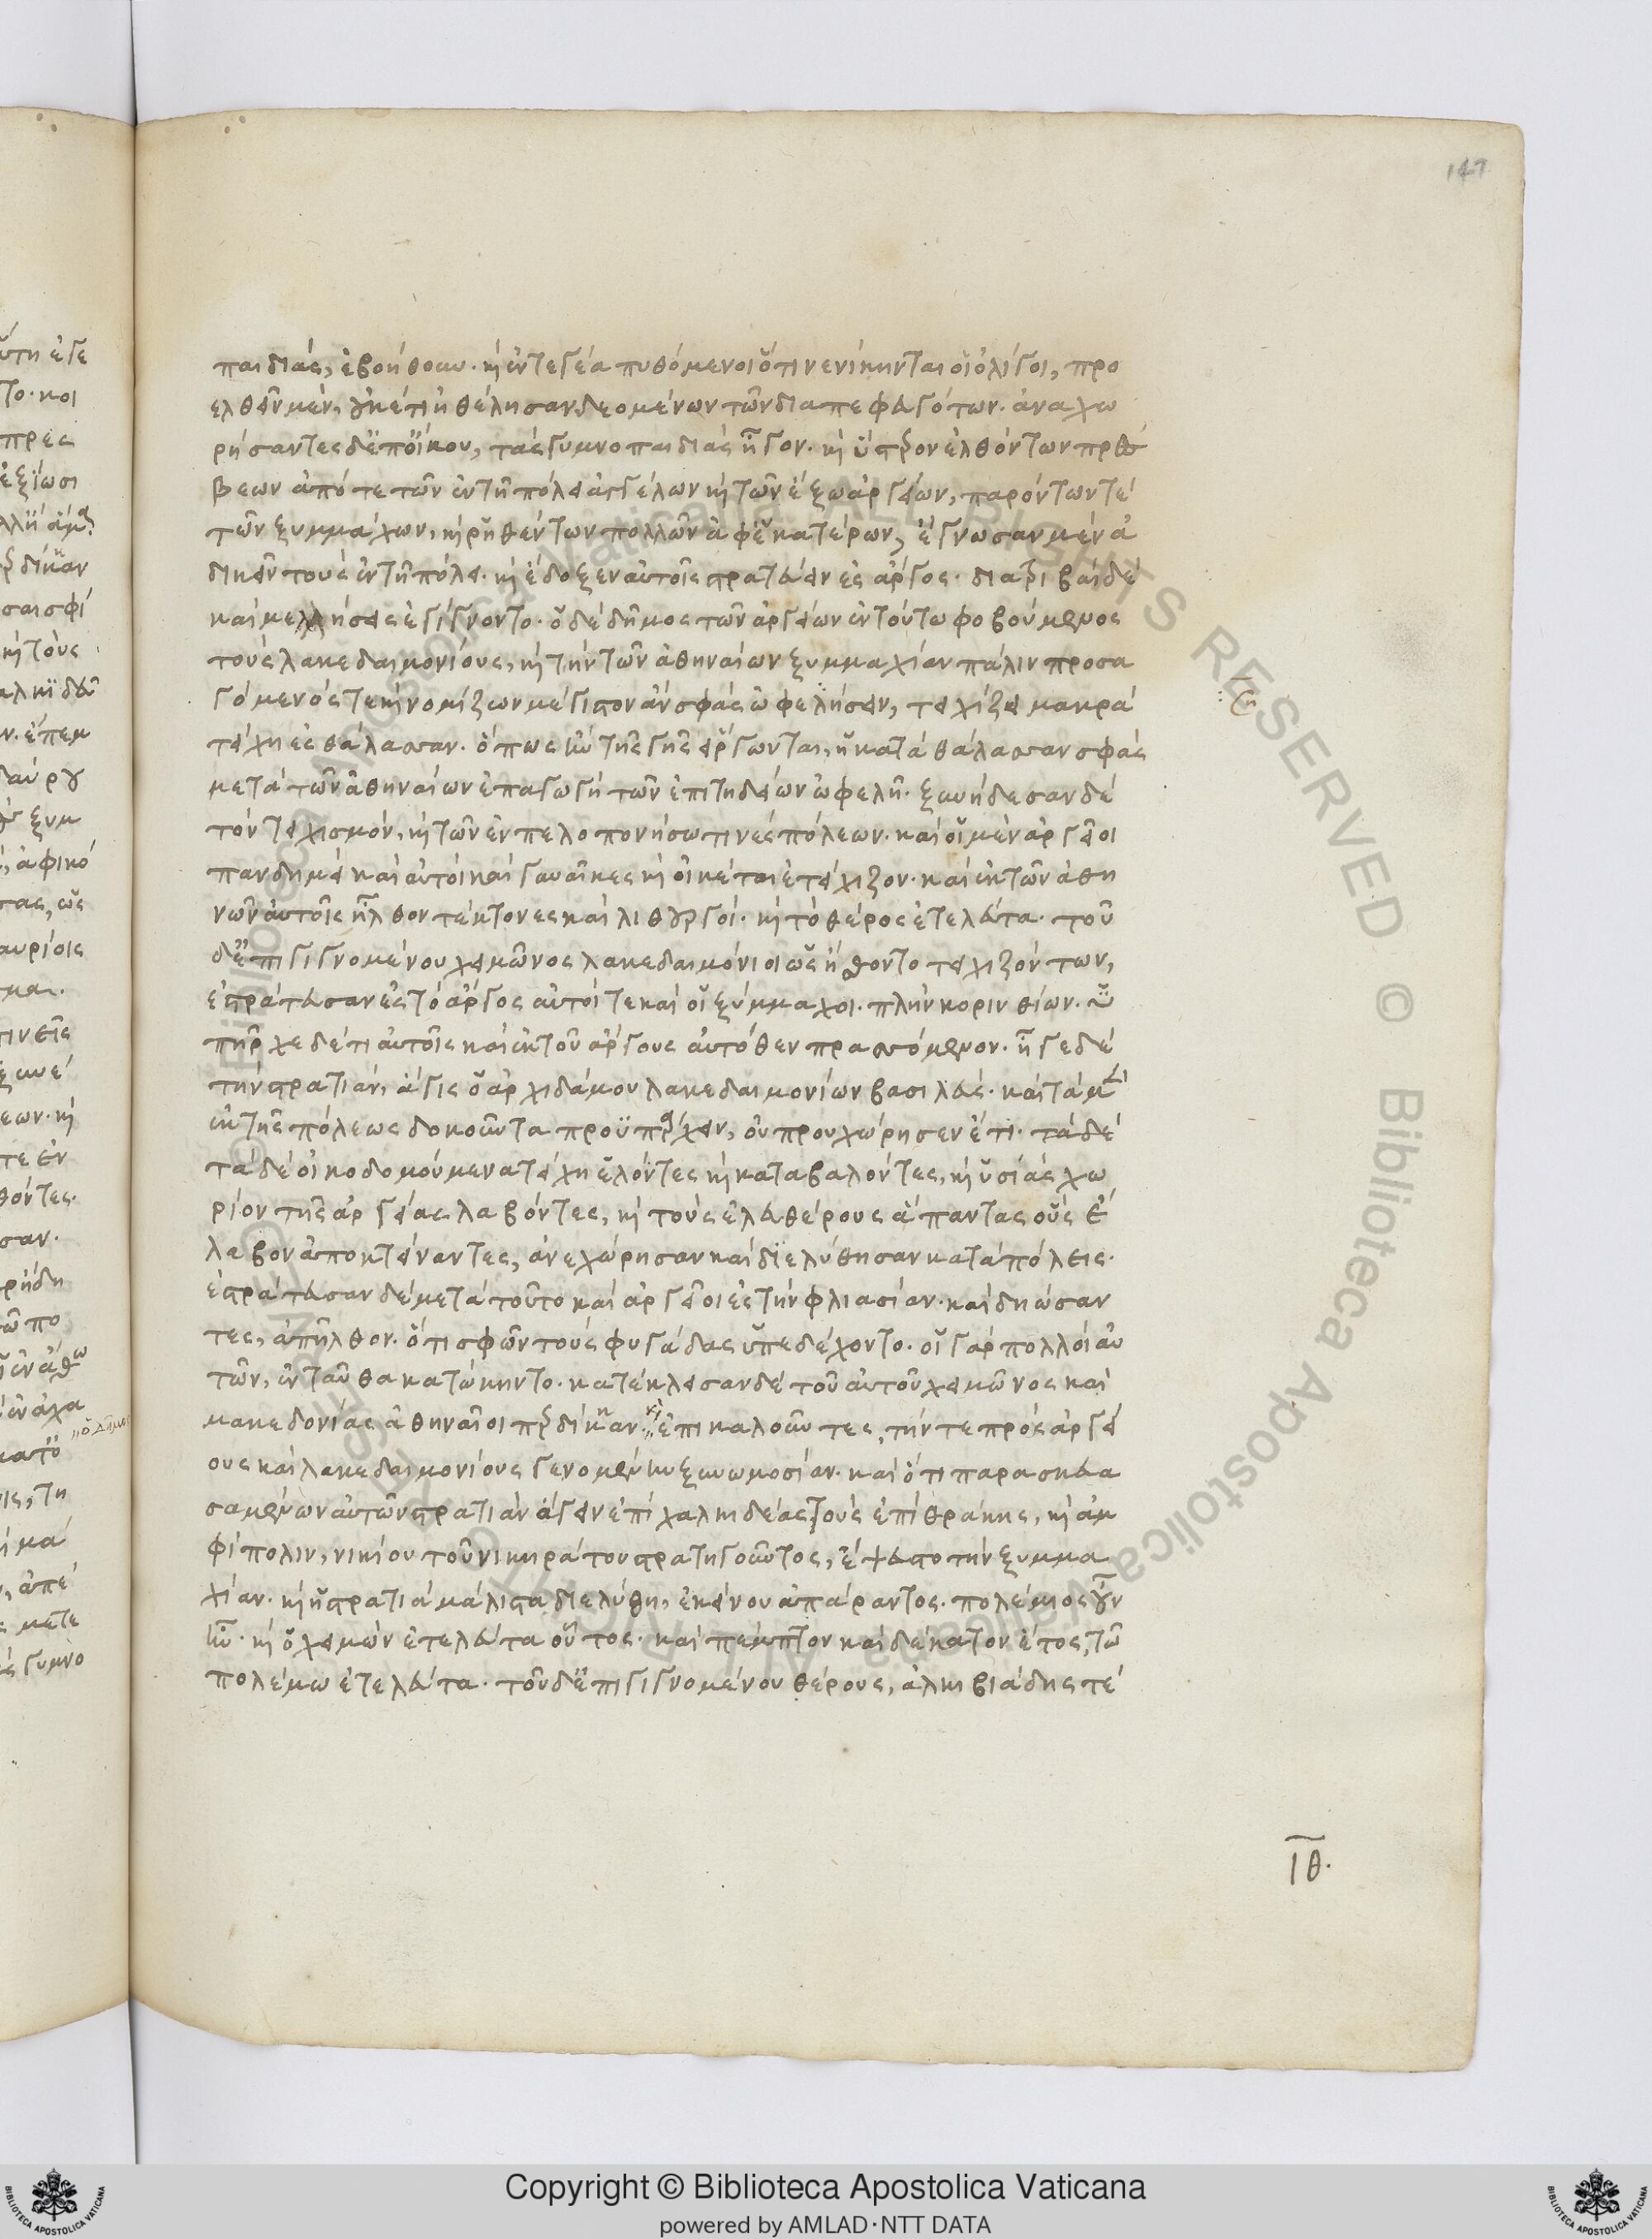 147
παιδιὰς, ἐβοήθουν. καὶ ἐν τεγέα πυθόμενοι ὅτι νενίκηνται οἱ ὀλίγοι, προ
ελθεῖν μὲν, οὐκέτι ἠθέλησαν δεομένων τῶν διαπεφευγότων. ἀναχω
ρήσαντες δὲ ἐπ' οἴκου, τὰς γυμνοπαιδιὰς ἦγον. καὶ ὕστερον ἐλθόντων πρέσ
βεων ἀπό τε τῶν ἐν τῆ πόλει ἀγγέλων καὶ τῶν ἔξω ἀργείων, παρόντων τὲ
τῶν ξυμμάχων, καὶ ῥηθέντων πολλῶν ἀφ' ἑκατέρων, ἔγνωσαν μὲν ἀ
δικεῖν τοὺς ἐν τῆ πόλει. καὶ ἔδοξεν αὐτοῖς στρατεύειν ἐς ἄργος. διατριβαὶ δὲ
καὶ μελλήσεις ἐγίγνοντο. ὁ δὲ δῆμος τῶν ἀργείων ἐν τούτω φοβούμενος
τοὺς λακεδαιμονίους, καὶ τὴν τῶν ἀθηναίων ξυμμαχίαν πάλιν προσα
γόμενός τε καὶ νομίζων μέγιστον ἂν σφᾶς ὠφελήσειν, τειχίζει μακρὰ
τείχη ἐς θάλασσαν. ὅπως ἢν τῆς γῆς εἴργωνται, ἡ κατὰ θάλασσαν σφᾶς
μετὰ τῶν ἀθηναίων ἐπαγωγὴ τῶν ἐπιτηδείων ὠφελῆ. ξυνήδεσαν δὲ
τὸν τειχισμὸν, καὶ τῶν ἐν πελοποννήσω τινὲς πόλεων. καὶ οἱ μὲν ἀργεῖοι
πανδημεὶ καὶ αὐτοὶ καὶ γυναῖκες καὶ οἰκέται ἐτείχιζον. καὶ ἐκ τῶν ἀθη
νῶν αὐτοῖς ἦλθον τέκτονες καὶ λιθουργοί. καὶ τὸ θέρος ἐτελεύτα. τοῦ
δ' ἐπιγιγνομένου χειμῶνος λακεδαιμόνιοι ὡς ἤσθοντο τειχιζόντων,
ἐστράτευσαν ἐς τὸ ἄργος αὐτοί τε καὶ οἱ ξύμμαχοι. πλὴν κορινθίων. ὑ
πῆρχε δέ τι αὐτοῖς καὶ ἐκ τοῦ ἄργους αὐτόθεν πρασσόμενον. ἦγε δὲ
τὴν στρατιὰν, ἆγις ὁ ἀρχιδάμου λακεδαιμονίων βασιλεύς. καὶ τὰ μὲν
ἐκ τῆς πόλεως δοκοῦντα προϋπάρχειν, οὐ προυχώρησεν ἔτι. τὰ δὲ
τὰ δὲ οἰκοδομούμενα τείχη ἑλόντες καὶ καταβαλόντες, καὶ ὑσιὰς χω
ρίον τῆς ἀργείας λαβόντες, καὶ τοὺς ἐλευθέρους ἅπαντας οὓς ἔ
λαβον ἀποκτείναντες, ἀνεχώρησαν καὶ διελύθησαν κατὰ πόλεις.
ἐστράτευσαν δὲ μετὰ τοῦτο καὶ ἀργεῖοι ἐς τὴν φλιασίαν. καὶ δηώσαν
τες, ἀπῆλθον. ὅτι σφῶν τοὺς φυγάδας ὑπεδέχοντο. οἱ γὰρ πολλοὶ αὐ
τῶν, ἐνταῦθα κατώκηντο. κατέκλεισαν δὲ τοῦ αὐτοῦ χειμῶνος καὶ
μακεδονίας ἀθηναῖοι περδίκκαν. ἐπικαλοῦντες, τήν τε πρὸς ἀργεί
ους καὶ λακεδαιμονίους γενομένην ξυνωμοσίαν. καὶ ὅτι παρασκευα
σαμένων αὐτῶν στρατιὰν ἄγειν ἐπὶ χαλκιδέας τοὺς ἐπὶ θράκης, καὶ ἀμ
φίπολιν, νικίου τοῦ νικηράτου στρατηγοῦντος, ἔψευστο τὴν ξυμμα
χίαν. καὶ ἡ στρατιὰ μάλιστα διελύθη, ἐκείνου ἀπάραντος. πολέμιος οὖν
ἦν. καὶ ὁ χειμὼν ἐτελεύτα οὗτος. καὶ πέμπτον καὶ δέκατον ἔτος, τῶ
πολέμω ἐτελεύτα. τοῦ δ' ἐπιγιγνομένου θέρους, ἀλκιβιάδης τὲ
ιθ.
Copyright © Biblioteca Apostolica Vaticana
powered by AMLAD·NTT DATA